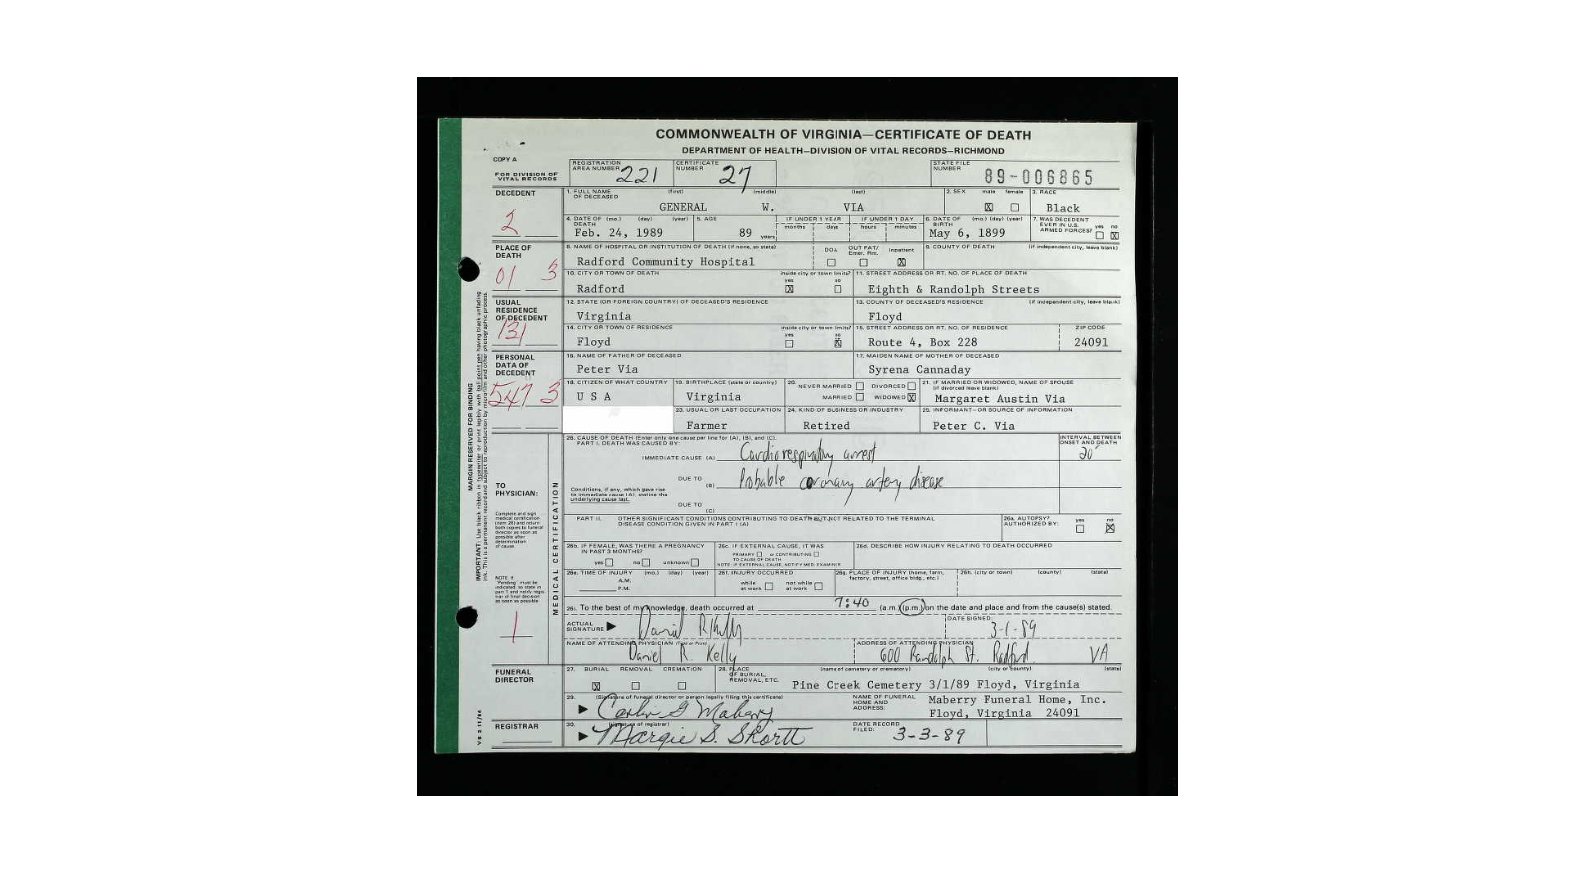 COMMONWEALTH OF VIRGINIA—CERTIFICATE OF DEATH
DEPARTMENT OF HEALTH—DIVISION OF VITAL RECORDS—RICHMOND
COPY A
FOR DIVISION OF VITAL RECORDS
REGISTRATION AREA NUMBER 221 CERTIFICATE NUMBER 27 STATE FILE NUMBER 89-006865
DECEDENT
2
1. FULL NAME OF DECEASED (first) (middle) (last) 2. SEX male female 3. RACE
GENERAL W. VIA ☒ ☐ Black
4. DATE OF DEATH (mo.) (day) (year) 5. AGE IF UNDER 1 YEAR months days IF UNDER 1 DAY hours minutes 6. DATE OF BIRTH (mo.) (day) (year) 7. WAS DECEDENT EVER IN U.S. ARMED FORCES? yes no
Feb. 24, 1989 89 years May 6, 1899 ☐ ☒
PLACE OF DEATH
01 3
8. NAME OF HOSPITAL OR INSTITUTION OF DEATH (if none, so state) DOA OUT PAT/ Emer. Rm. Inpatient 9. COUNTY OF DEATH (if independent city, leave blank)
Radford Community Hospital ☐ ☐ ☒
10. CITY OR TOWN OF DEATH inside city or town limits? yes no 11. STREET ADDRESS OR RT. NO. OF PLACE OF DEATH
Radford ☒ ☐ Eighth & Randolph Streets
USUAL RESIDENCE OF DECEDENT
131
12. STATE (OR FOREIGN COUNTRY) OF DECEASED'S RESIDENCE 13. COUNTY OF DECEASED'S RESIDENCE (if independent city, leave blank)
Virginia Floyd
14. CITY OR TOWN OF RESIDENCE inside city or town limits? yes no 15. STREET ADDRESS OR RT. NO. OF RESIDENCE ZIP CODE
Floyd ☐ ☒ Route 4, Box 228 24091
PERSONAL DATA OF DECEDENT
547 3
16. NAME OF FATHER OF DECEASED 17. MAIDEN NAME OF MOTHER OF DECEASED
Peter Via Syrena Cannaday
18. CITIZEN OF WHAT COUNTRY 19. BIRTHPLACE (state or country) 20. NEVER MARRIED ☐ DIVORCED ☐ MARRIED ☐ WIDOWED ☒ 21. IF MARRIED OR WIDOWED, NAME OF SPOUSE (if divorced leave blank)
U S A Virginia Margaret Austin Via
23. USUAL OR LAST OCCUPATION 24. KIND OF BUSINESS OR INDUSTRY 25. INFORMANT—OR SOURCE OF INFORMATION
Farmer Retired Peter C. Via
MARGIN RESERVED FOR BINDING
MEDICAL CERTIFICATION
26. CAUSE OF DEATH (Enter only one cause per line for (A), (B), and (C).
PART I. DEATH WAS CAUSED BY: INTERVAL BETWEEN ONSET AND DEATH
IMMEDIATE CAUSE (A) Cardiorespiratory arrest 20'
DUE TO (B) Probable coronary artery disease
Conditions, if any, which gave rise to immediate cause (A), stating the underlying cause last.
DUE TO (C)
TO PHYSICIAN:
Complete and sign medical certification (item 26) and return both copies to funeral director as soon as possible after determination of cause.
PART II. OTHER SIGNIFICANT CONDITIONS CONTRIBUTING TO DEATH BUT NOT RELATED TO THE TERMINAL DISEASE CONDITION GIVEN IN PART I (A) 26a. AUTOPSY? AUTHORIZED BY: yes ☐ no ☒
26b. IF FEMALE, WAS THERE A PREGNANCY IN PAST 3 MONTHS? yes ☐ no ☐ unknown ☐
26c. IF EXTERNAL CAUSE, IT WAS PRIMARY ☐ or CONTRIBUTING ☐ TO CAUSE OF DEATH
NOTE: IF EXTERNAL CAUSE, NOTIFY MED. EXAMINER
26d. DESCRIBE HOW INJURY RELATING TO DEATH OCCURRED
26e. TIME OF INJURY (mo.) (day) (year) A.M. P.M.
26f. INJURY OCCURRED while at work ☐ not while at work ☐
26g. PLACE OF INJURY (home, farm, factory, street, office bldg., etc.) 26h. (city or town) (county) (state)
NOTE: If "Pending" must be indicated, so state in part I and notify registrar of final decision as soon as possible
1
26i. To the best of my knowledge, death occurred at 7:40 (a.m.) (p.m.) on the date and place and from the cause(s) stated.
ACTUAL SIGNATURE ▶ Daniel R. Kelly DATE SIGNED 3-1-89
NAME OF ATTENDING PHYSICIAN (Type or Print) ADDRESS OF ATTENDING PHYSICIAN
Daniel R. Kelly 600 Randolph St. Radford VA
FUNERAL DIRECTOR
27. BURIAL REMOVAL CREMATION 28. PLACE OF BURIAL, REMOVAL, ETC. (name of cemetery or crematory) (city or county) (state)
☒ ☐ ☐ Pine Creek Cemetery 3/1/89 Floyd, Virginia
29. (Signature of funeral director or person legally filing this certificate) NAME OF FUNERAL HOME AND ADDRESS: Maberry Funeral Home, Inc.
▶ Floyd, Virginia 24091
REGISTRAR
30. (signature of registrar) DATE RECORD FILED:
▶ Margie S. Shortt 3-3-89
VS 2 11/84